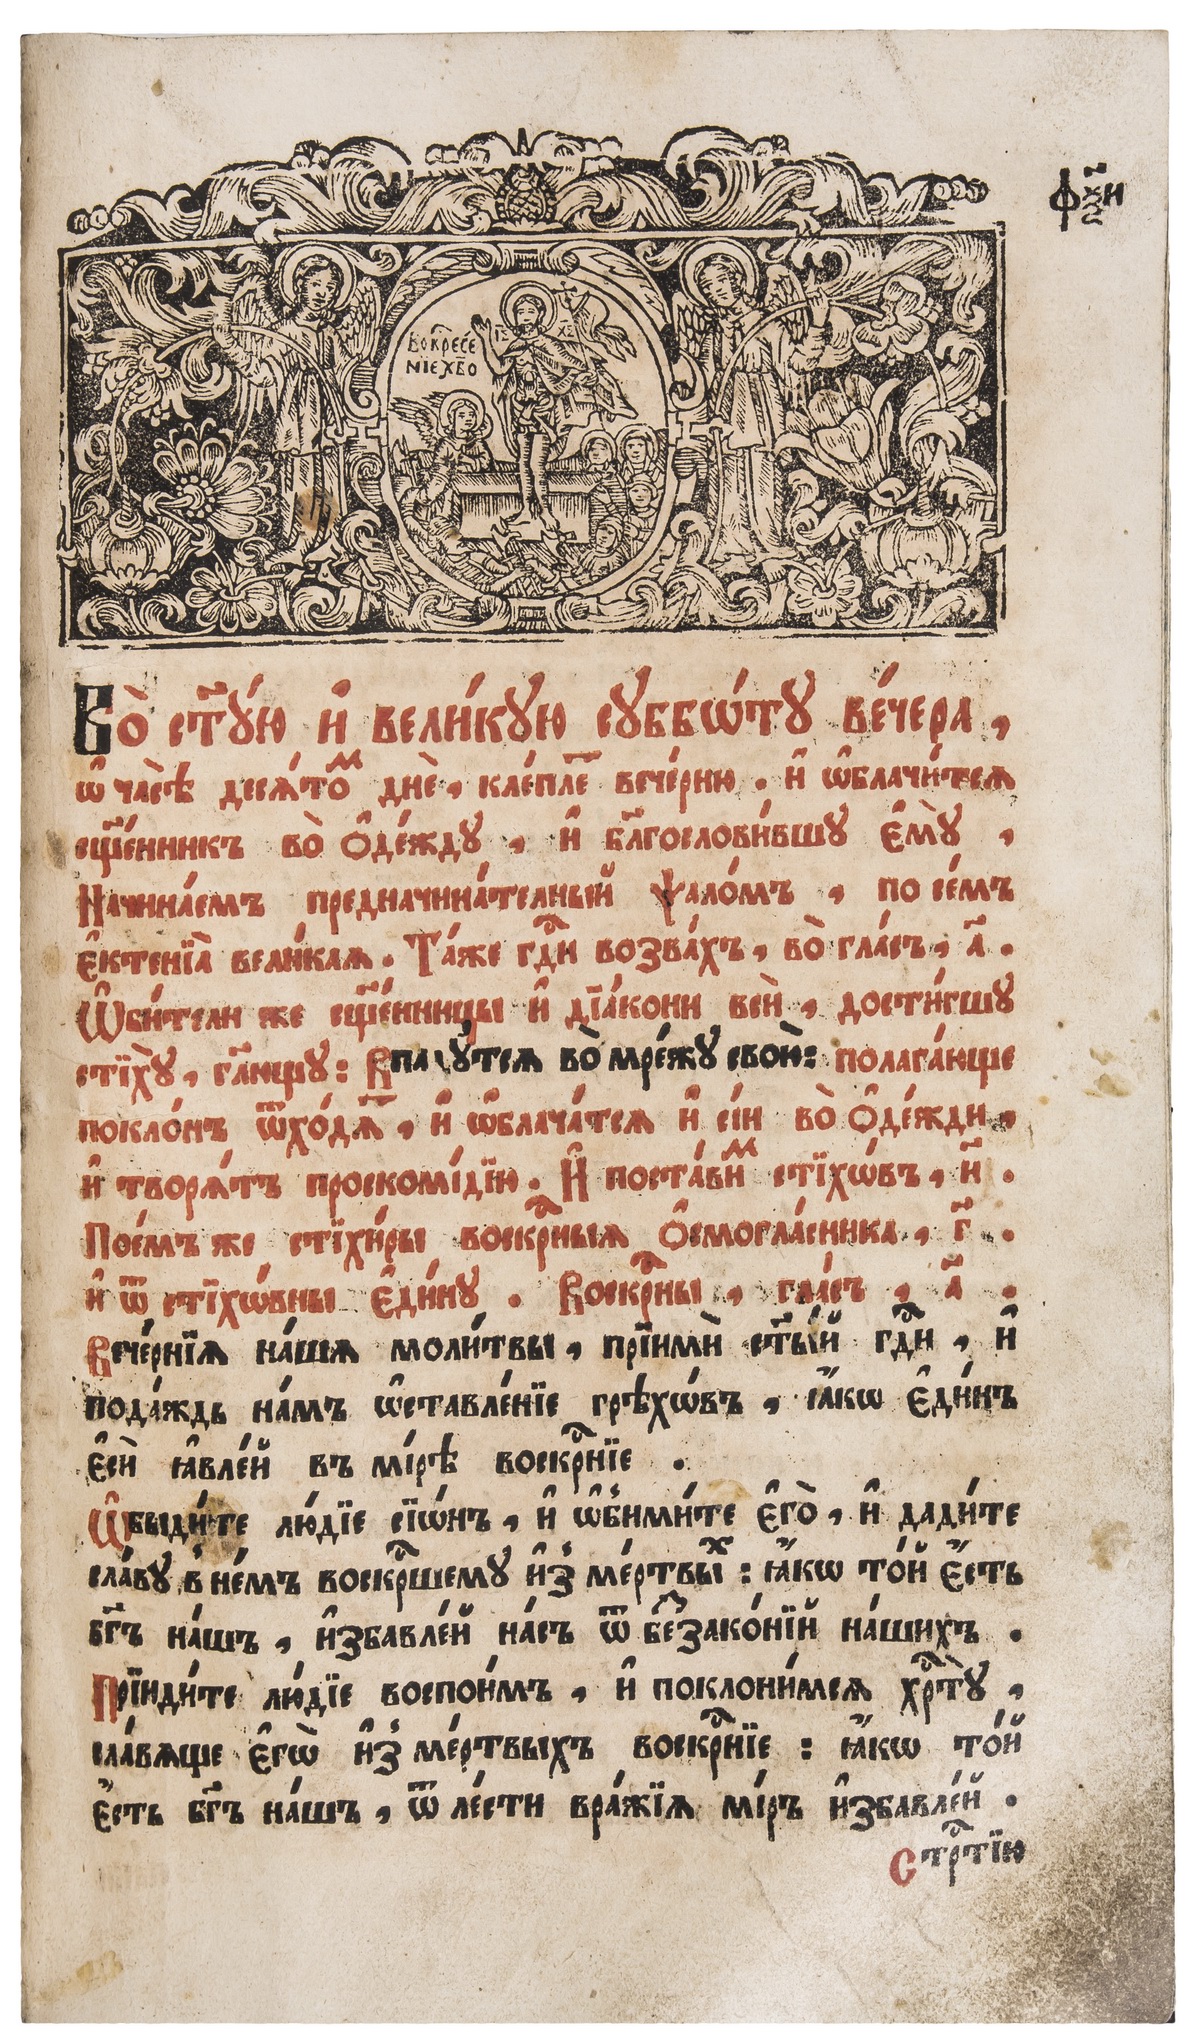 фѯ҃и
ВОКР҃ЕСЕ
НІЕ Х҃ВО
Во̀ ст҃ꙋ́ю и҆ вели́кꙋю сꙋббѡ́тꙋ ве́чера,
ѡ҆ ча́сѣ̀ деся́тоⷨ днѐ, кле́плеⷮ вече́рню. и҆ ѡ҆блачи́тсѧ
сщ҃е́нникъ во̀ ѻ҆де́ждꙋ, и҆ бл҃гослови́вшꙋ є҆мꙋ̀,
Начина́емъ предначина́телный ѱало́мъ, по се́мъ
є҆ктенїа̀ вели́каѧ. Та́же гдⷭ҇и возва́хъ, во̀ гла́съ, а҃.
Ѡ҆би́тели же сщ҃е́нницы и҆ дїа́кони всѝ, дости́гшꙋ
стїхꙋ̀, гл҃ющꙋ: Впадꙋ́тсѧ во̀ мре́жꙋ свою̀: полага́юще
покло́нъ ѿхо́дѧⷮ, и҆ ѡ҆блача́тсѧ и҆ сі́и во̀ ѻ҆де́жди,
и҆ творѧ́тъ проскомі́дїю. И҆ поста́виⷨ стїхѡ́въ, и҃.
Пое́мъ же стїхи́ры воскрⷭ҇ныѧ ѻ҆смогла́сника, г҃.
и҆ ѿ стїхѡ́вны є҆ди́нꙋ. Воскрⷭ҇ны, гла́съ, а҃.
Вече́рнїѧ на́шѧ моли́твы, прїимѝ ст҃ы́й гдⷭ҇и, и҆
пода́ждь на́мъ ѡ҆ставле́нїе грѣхѡ́въ, ꙗ҆́кѡ є҆ди́нъ
є҆сѝ ꙗ҆вле́й въ мі́рѣ воскрⷭ҇нїе.
Ѡ҆быди́те лю́дїе сїѡ́нъ, и҆ ѡ҆б̾ими́те є҆го̀, и҆ дади́те
сла́вꙋ в̾ не́мъ воскрⷭ҇шемꙋ и҆з̾ ме́ртвыⷯ: ꙗ҆́кѡ то́й є҆́сть
бг҃ъ на́шъ, и҆збавле́й на́съ ѿ беззако́нїй на́шихъ.
Прїиди́те лю́дїе воспои́мъ, и҆ поклони́мсѧ хрⷭ҇тꙋ̀,
сла́вѧще є҆гѡ̀ и҆з̾ ме́ртвыхъ воскрⷭ҇нїе: ꙗ҆́кѡ то́й
є҆́сть бг҃ъ на́шъ, ѿ ле́сти вра́жїѧ мі́ръ и҆збавле́й.
Стрⷭ҇тїю